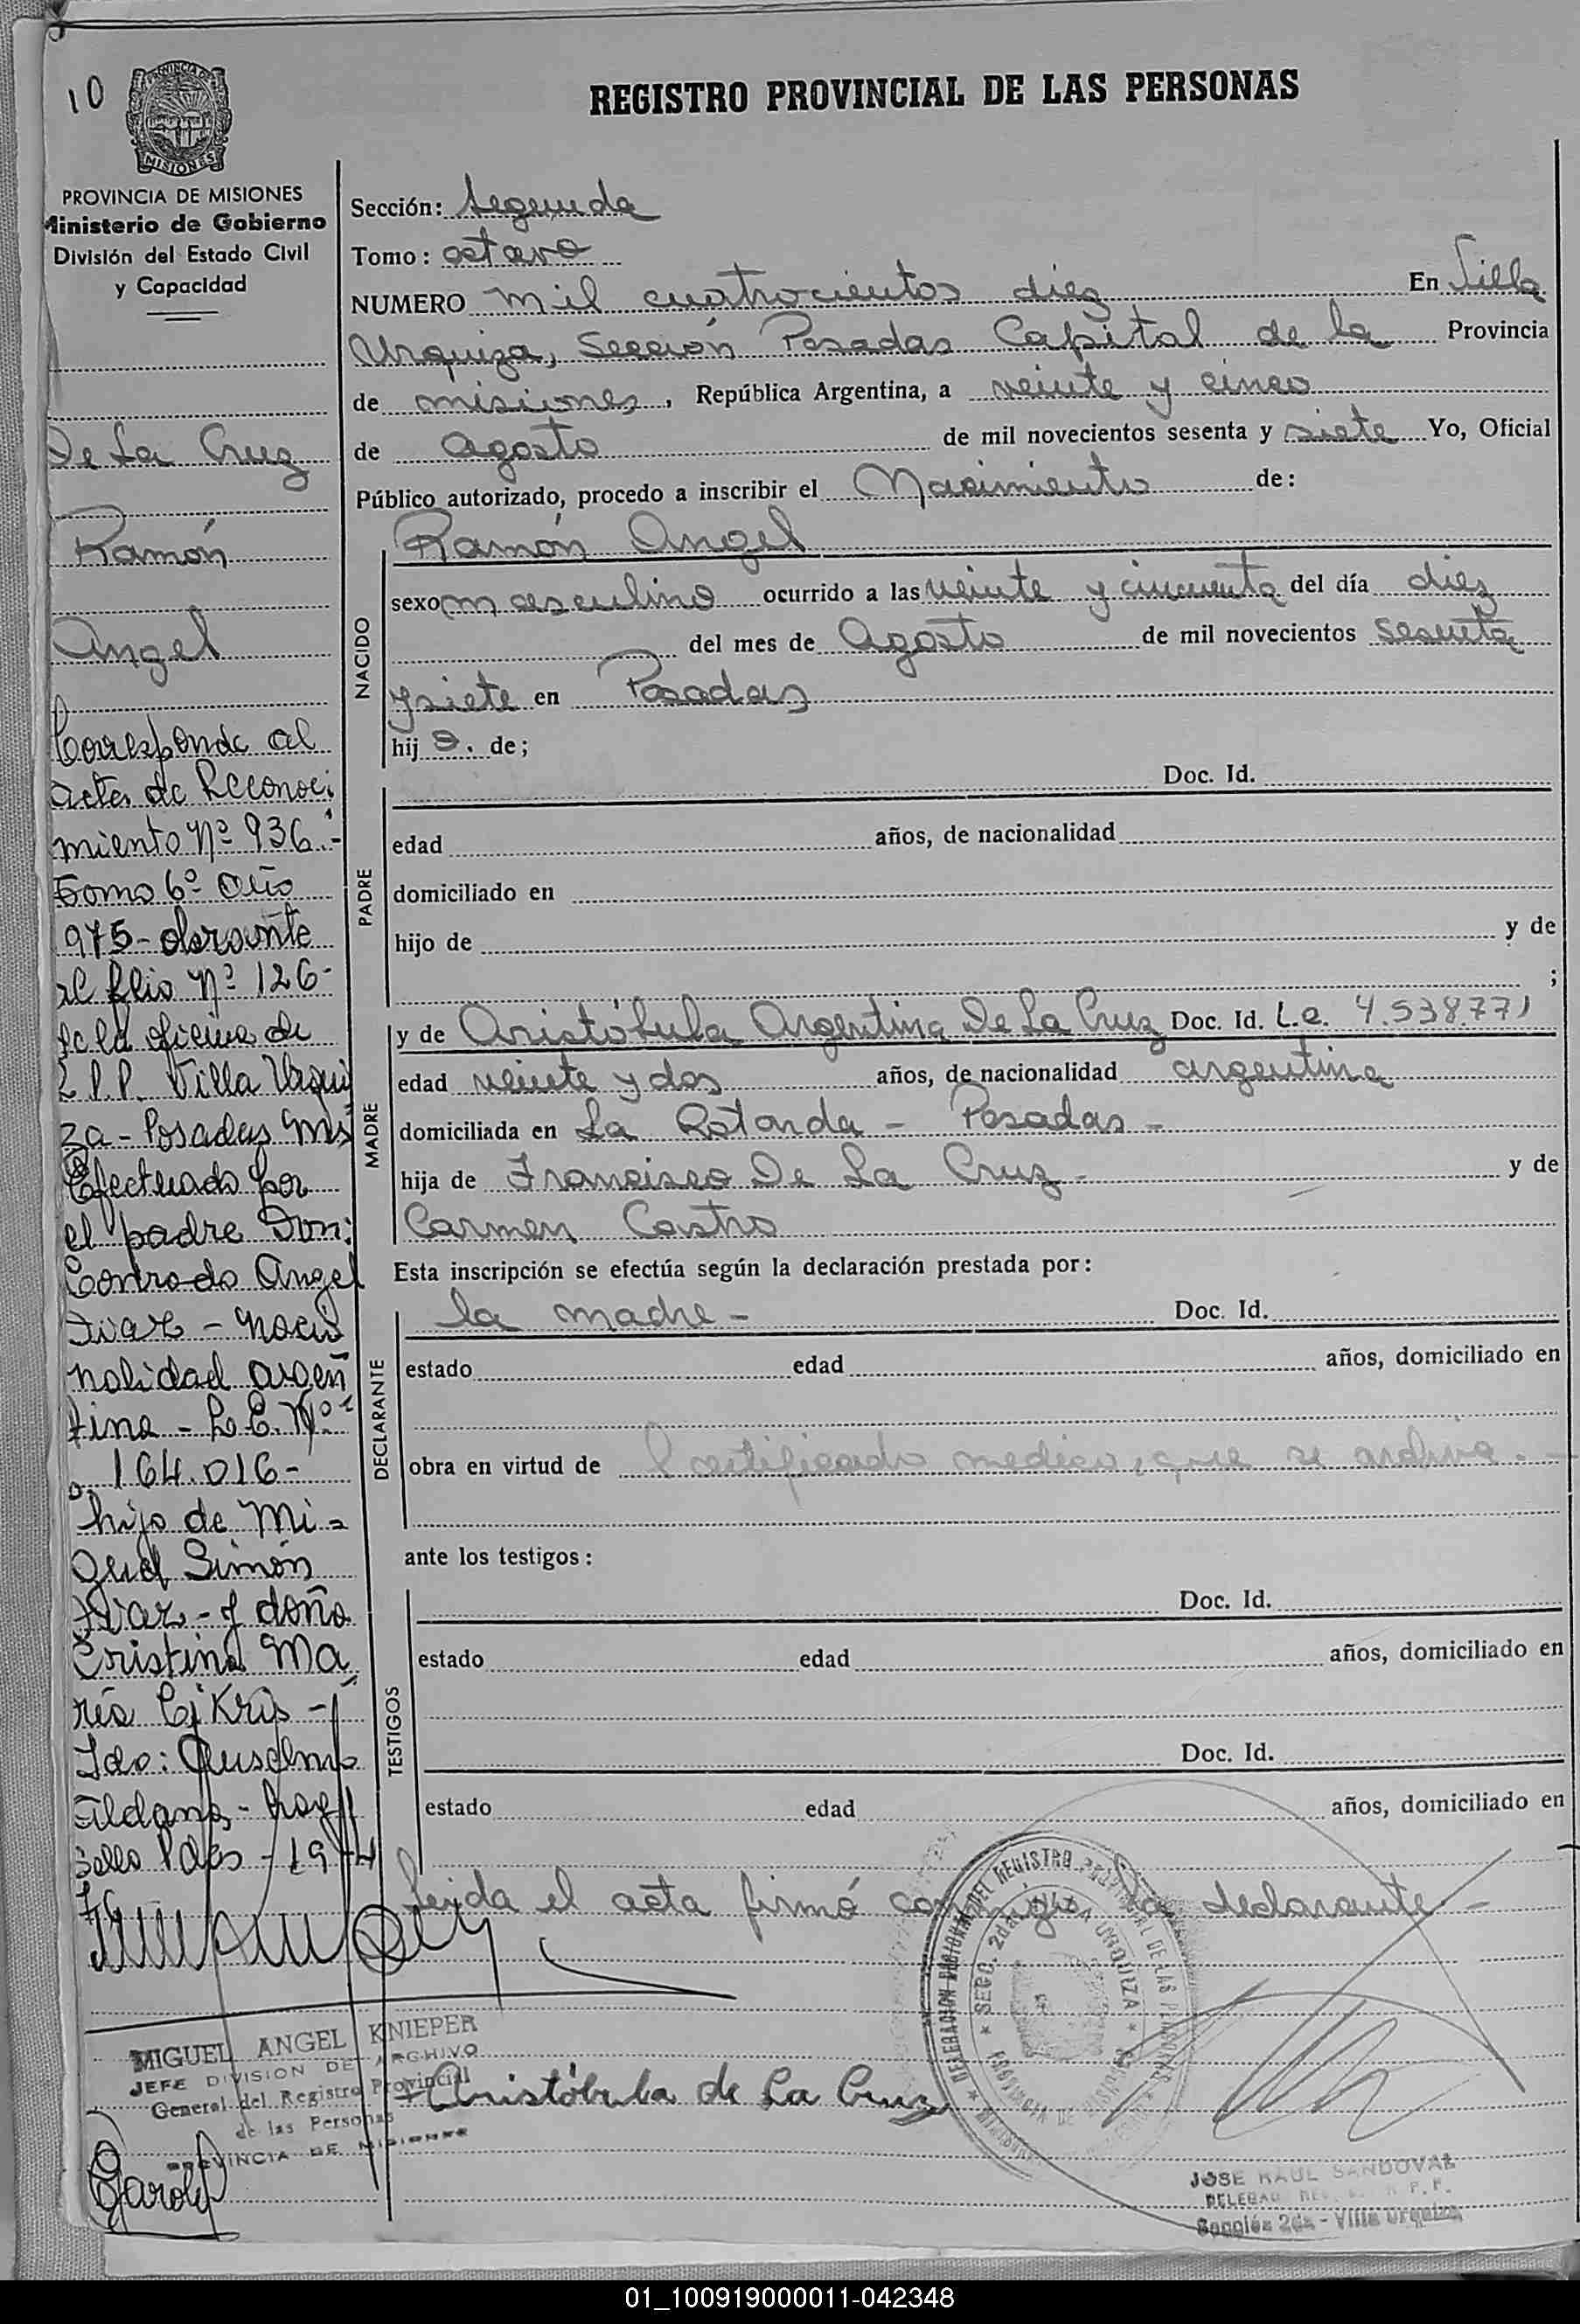 10
PROVINCIA DE
MISIONES
REGISTRO PROVINCIAL DE LAS PERSONAS
PROVINCIA DE MISIONES
Ministerio de Gobierno
División del Estado Civil
y Capacidad
De La Cruz
Ramón
Angel
Corresponde al
acta de Reconoci
miento Nº 936.-
Tomo 6º Año
975- obrante
al flio Nº 126-
de la oficina de
R.P.P. Villa Urqui
za - Posadas Mns
Efectuado por
el padre Don:
Conrado Angel
- nacio
nalidad argen
tina - L.E. Nº
164.016-
hijo de Mi-
guel Simón
- y doña
Cristina Ma
ria
Fdo: Anselmo
Aldana - hay
sello Pdas -
Sección: Segunda
Tomo: octavo
NUMERO mil cuatrocientos diez En Villa
Urquiza, Sección Posadas Capital de la Provincia
de misiones, República Argentina, a veinte y cinco
de Agosto de mil novecientos sesenta y siete Yo, Oficial
Público autorizado, procedo a inscribir el Nacimiento de:
NACIDO
Ramón Angel
sexo masculino ocurrido a las veinte y cincuenta del día diez
del mes de Agosto de mil novecientos sesenta
y siete en Posadas
hij o. de;
PADRE
Doc. Id.
edad años, de nacionalidad
domiciliado en
hijo de y de
;
MADRE
y de Aristóbula Argentina De La Cruz Doc. Id. L.c. 4.538.771
edad veinte y dos años, de nacionalidad argentina
domiciliada en La Rotonda - Posadas -
hija de Francisco De La Cruz - y de
Carmen Castro
Esta inscripción se efectúa según la declaración prestada por:
DECLARANTE
la madre - Doc. Id.
estado edad años, domiciliado en
obra en virtud de certificado medico, que se archiva.-
ante los testigos:
TESTIGOS
Doc. Id.
estado edad años, domiciliado en
Doc. Id.
estado edad años, domiciliado en
Leida el acta firmó conmigo la declarante -
MIGUEL ANGEL KNIEPER
JEFE DIVISION DE ARCHIVO
General del Registro Provincial
de las Personas
PROVINCIA DE MISIONES
Aristóbula de La Cruz
DELEGACION REGIONAL DEL REGISTRO PROVINCIAL DE LAS PERSONAS
SECC. 2da. VILLA URQUIZA
PROVINCIA DE MISIONES
JOSE RAUL SANDOVAL
Sección 2da - Villa Urquiza
01_100919000011-042348